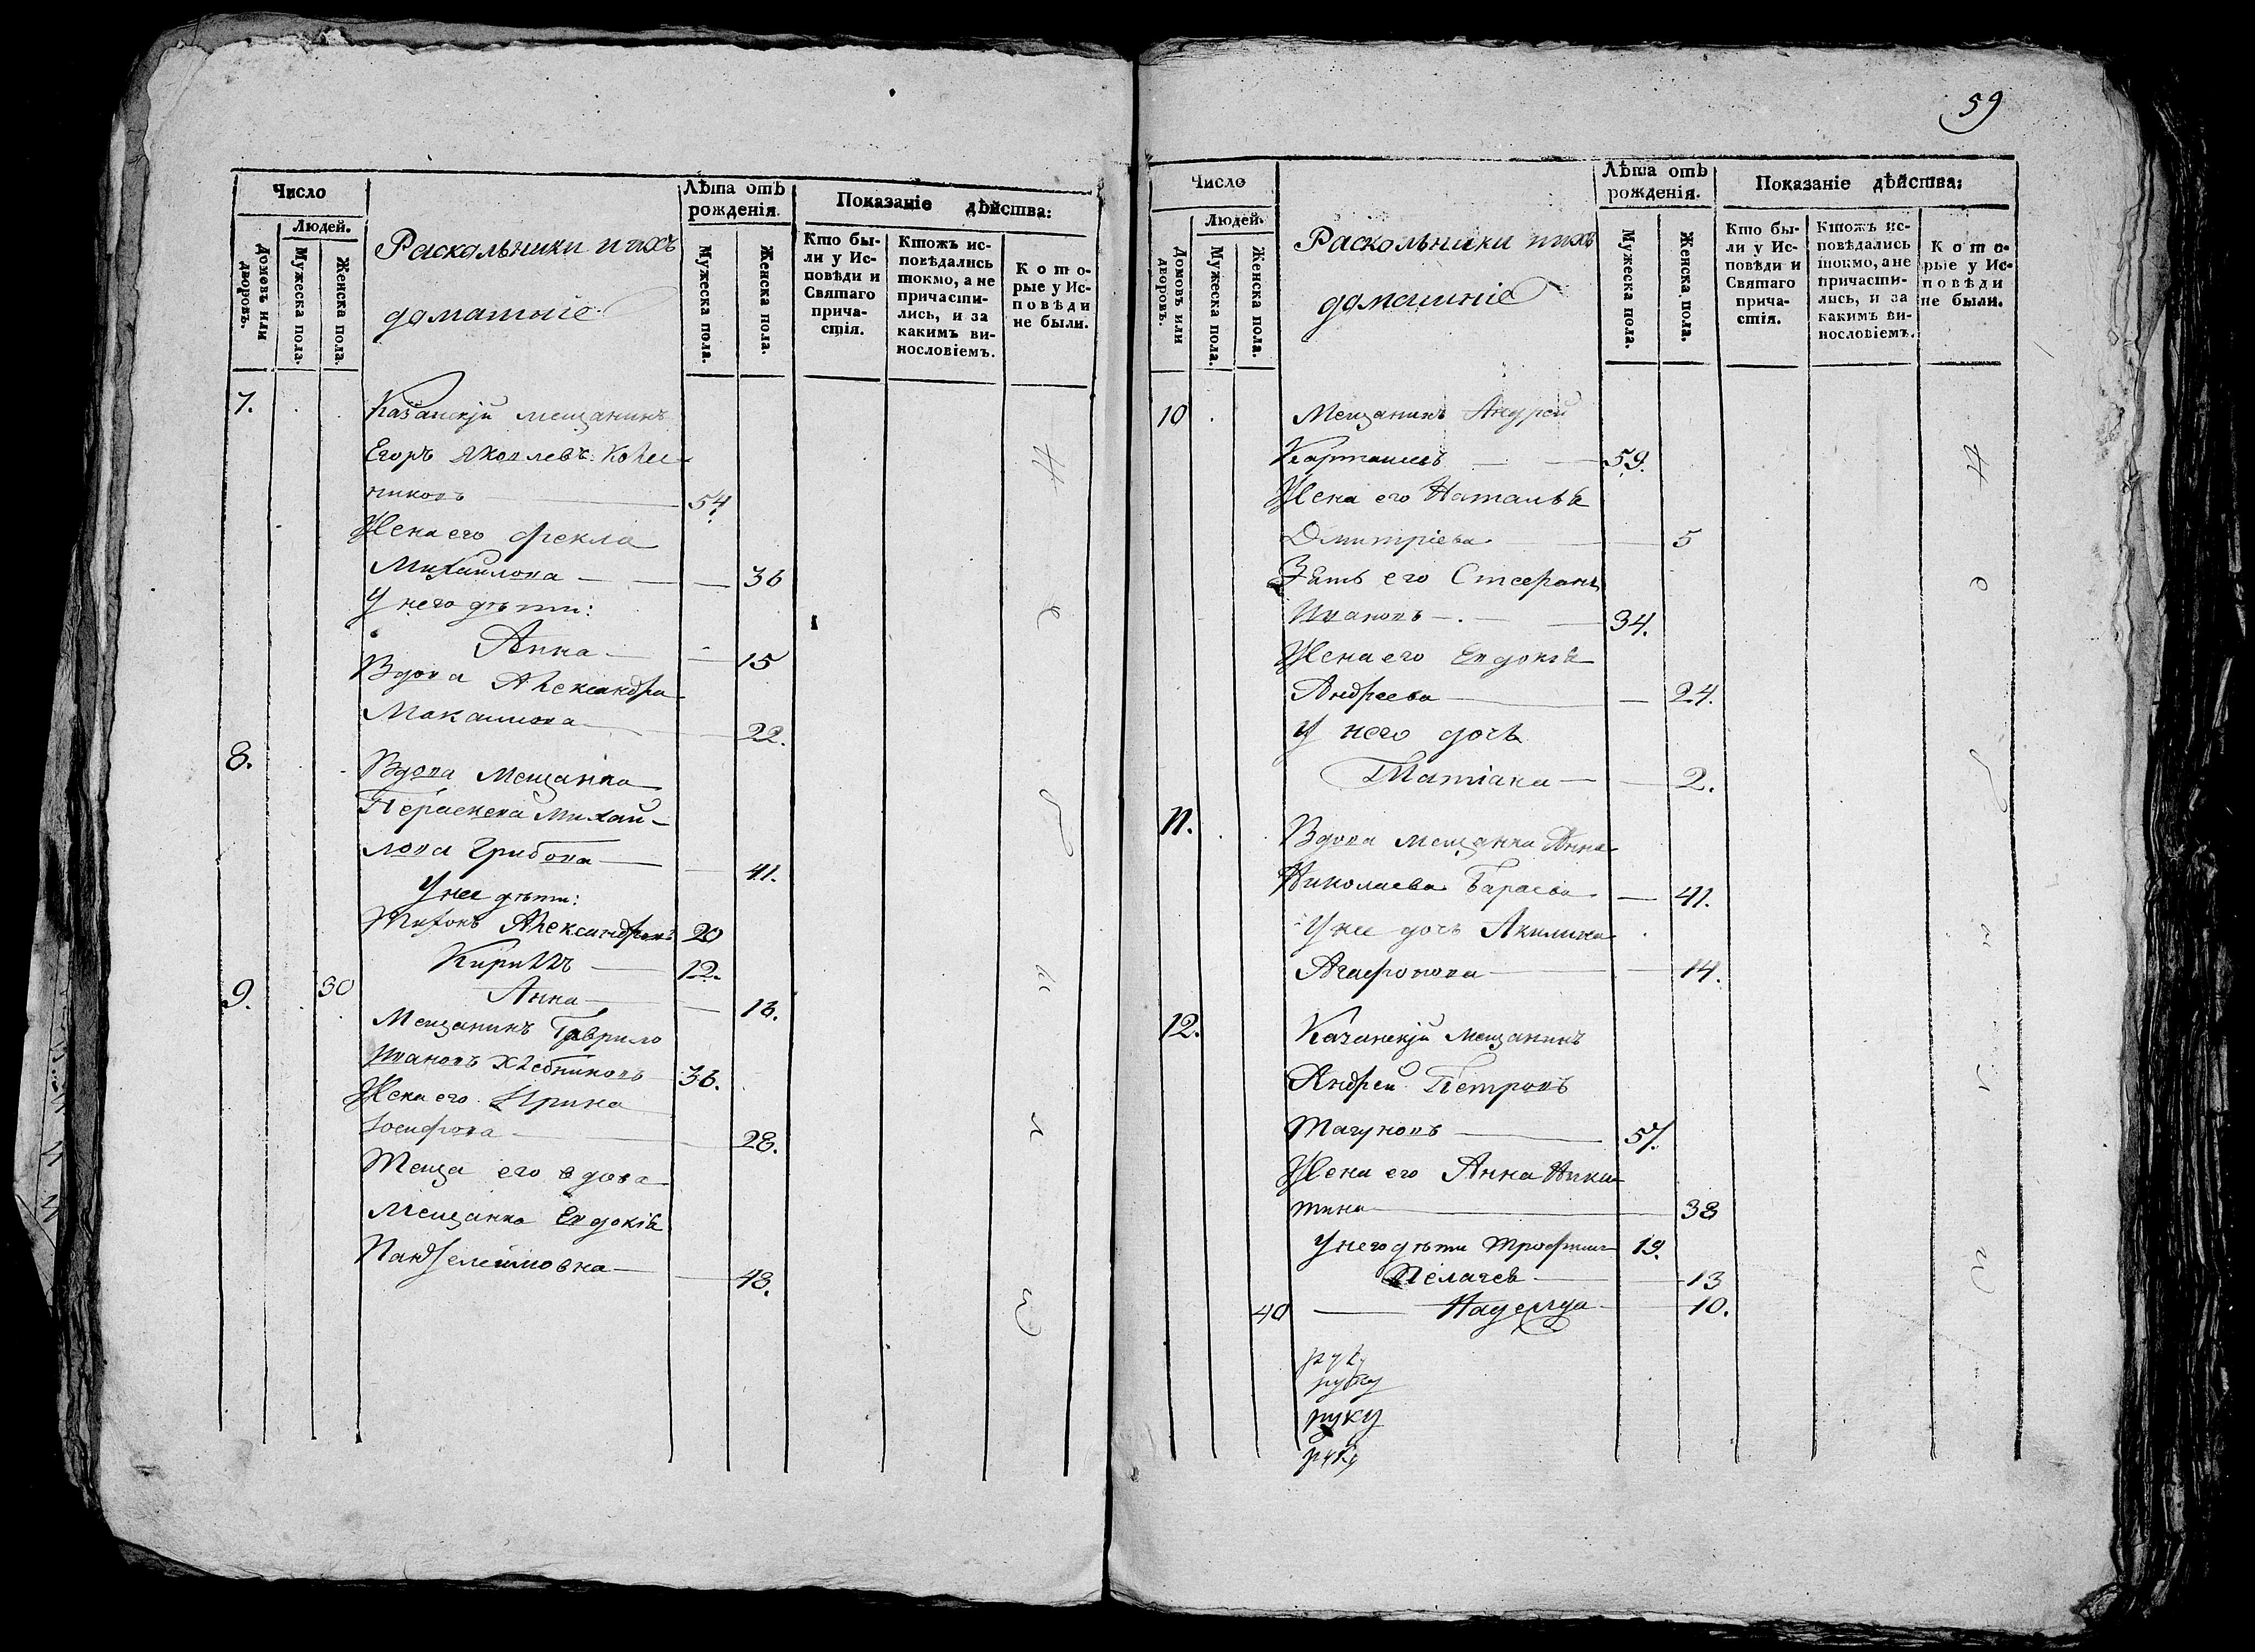 Число
Людей.
Домовъ или дворовъ.
Мужеска пола.
Женска пола.
Раскольники и ихъ
домашніе
Лѣта отъ рожденія.
Мужеска пола.
Женска пола.
Показаніе дѣйства:
Кто бы-
ли у Ис-
повѣди и
Святаго
прича-
стія.
Ктожъ ис-
повѣдались
токмо, а не
причасти-
лись, и за
какимъ ви-
нословіемъ.
Кото-
рые у Ис-
повѣди
не были.
7. Казанскій мещанинъ
Егоръ Яковлевъ
никовъ 54
Жена его Фекла
Михайлова 36
У него дѣти:
Анна 15
Вдова Александра
Макаилова 22.
8. Вдова мещанка
Параскева Михай-
лова Грибова 41.
У нее дѣти:
Тихонъ Александровъ 20
Кириллъ 12.
Анна 13.
9. 30
Мещанинъ Гаврило
Ивановъ Хлебниковъ 36.
Жена его Ирина
Іосифова 28.
Теща его вдова
Мещанка Евдокія
48.
не были
59
Число
Людей.
Домовъ или дворовъ.
Мужеска пола.
Женска пола.
Раскольники и ихъ
домашніе
Лѣта отъ рожденія.
Мужеска пола.
Женска пола.
Показаніе дѣйства:
Кто бы-
ли у Ис-
повѣди и
Святаго
прича-
стія.
Ктожъ ис-
повѣдались
токмо, а не
причасти-
лись, и за
какимъ ви-
нословіемъ.
Кото-
рые у Ис-
повѣди
не были.
10 Мещанинъ Андрей
59.
Жена его Наталья
Дмитріева 5
Зять его Стефанъ
Ивановъ 34.
Жена его Евдокія
Андреева 24.
У него дочь
Татіана 2.
11. Вдова мещанка Анна
Николаева Бараева 41.
У нее дочь Акилина
Агафонова 14.
12. Казанскій мещанинъ
Андрей Петровъ
Тагуновъ 57.
Жена его Анна Ники-
тина 38
У него дѣти Трофимъ 19.
13
40 Надежда 10.
руку
руку
руку
руку
не были